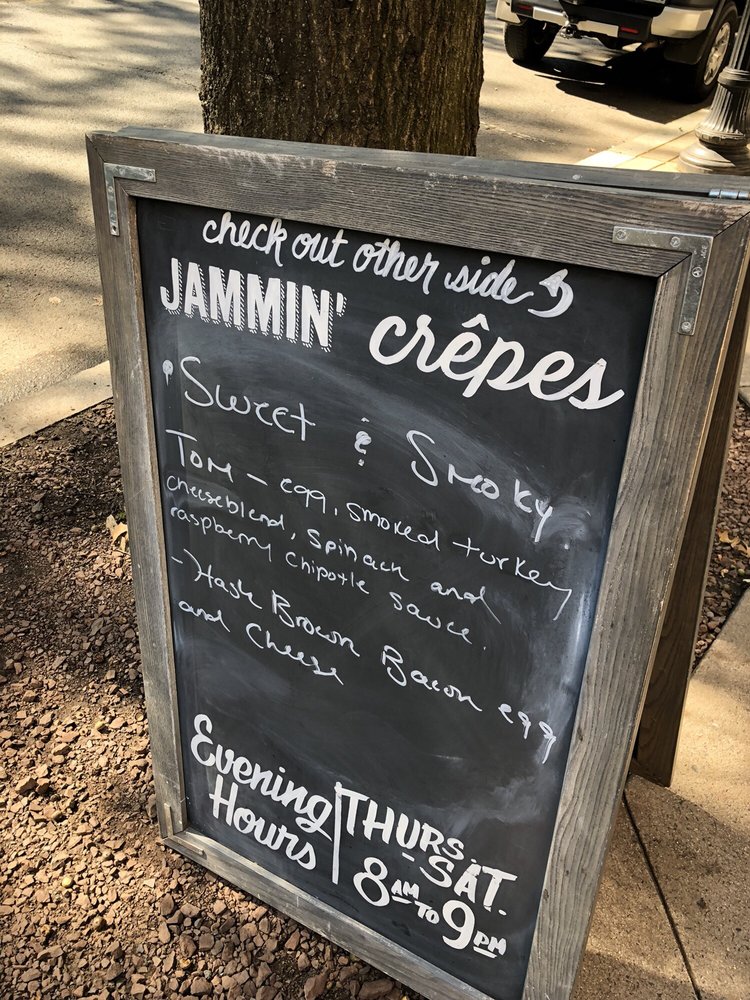 check out other side
JAMMIN' crêpes
• Sweet & Smoky
Tom - egg, smoked turkey,
cheeseblend, spinach and
raspberry chipotle sauce.
- Hash Brown Bacon egg
and Cheese
Evening
Hours
THURS.
- SAT.
8AM TO 9PM